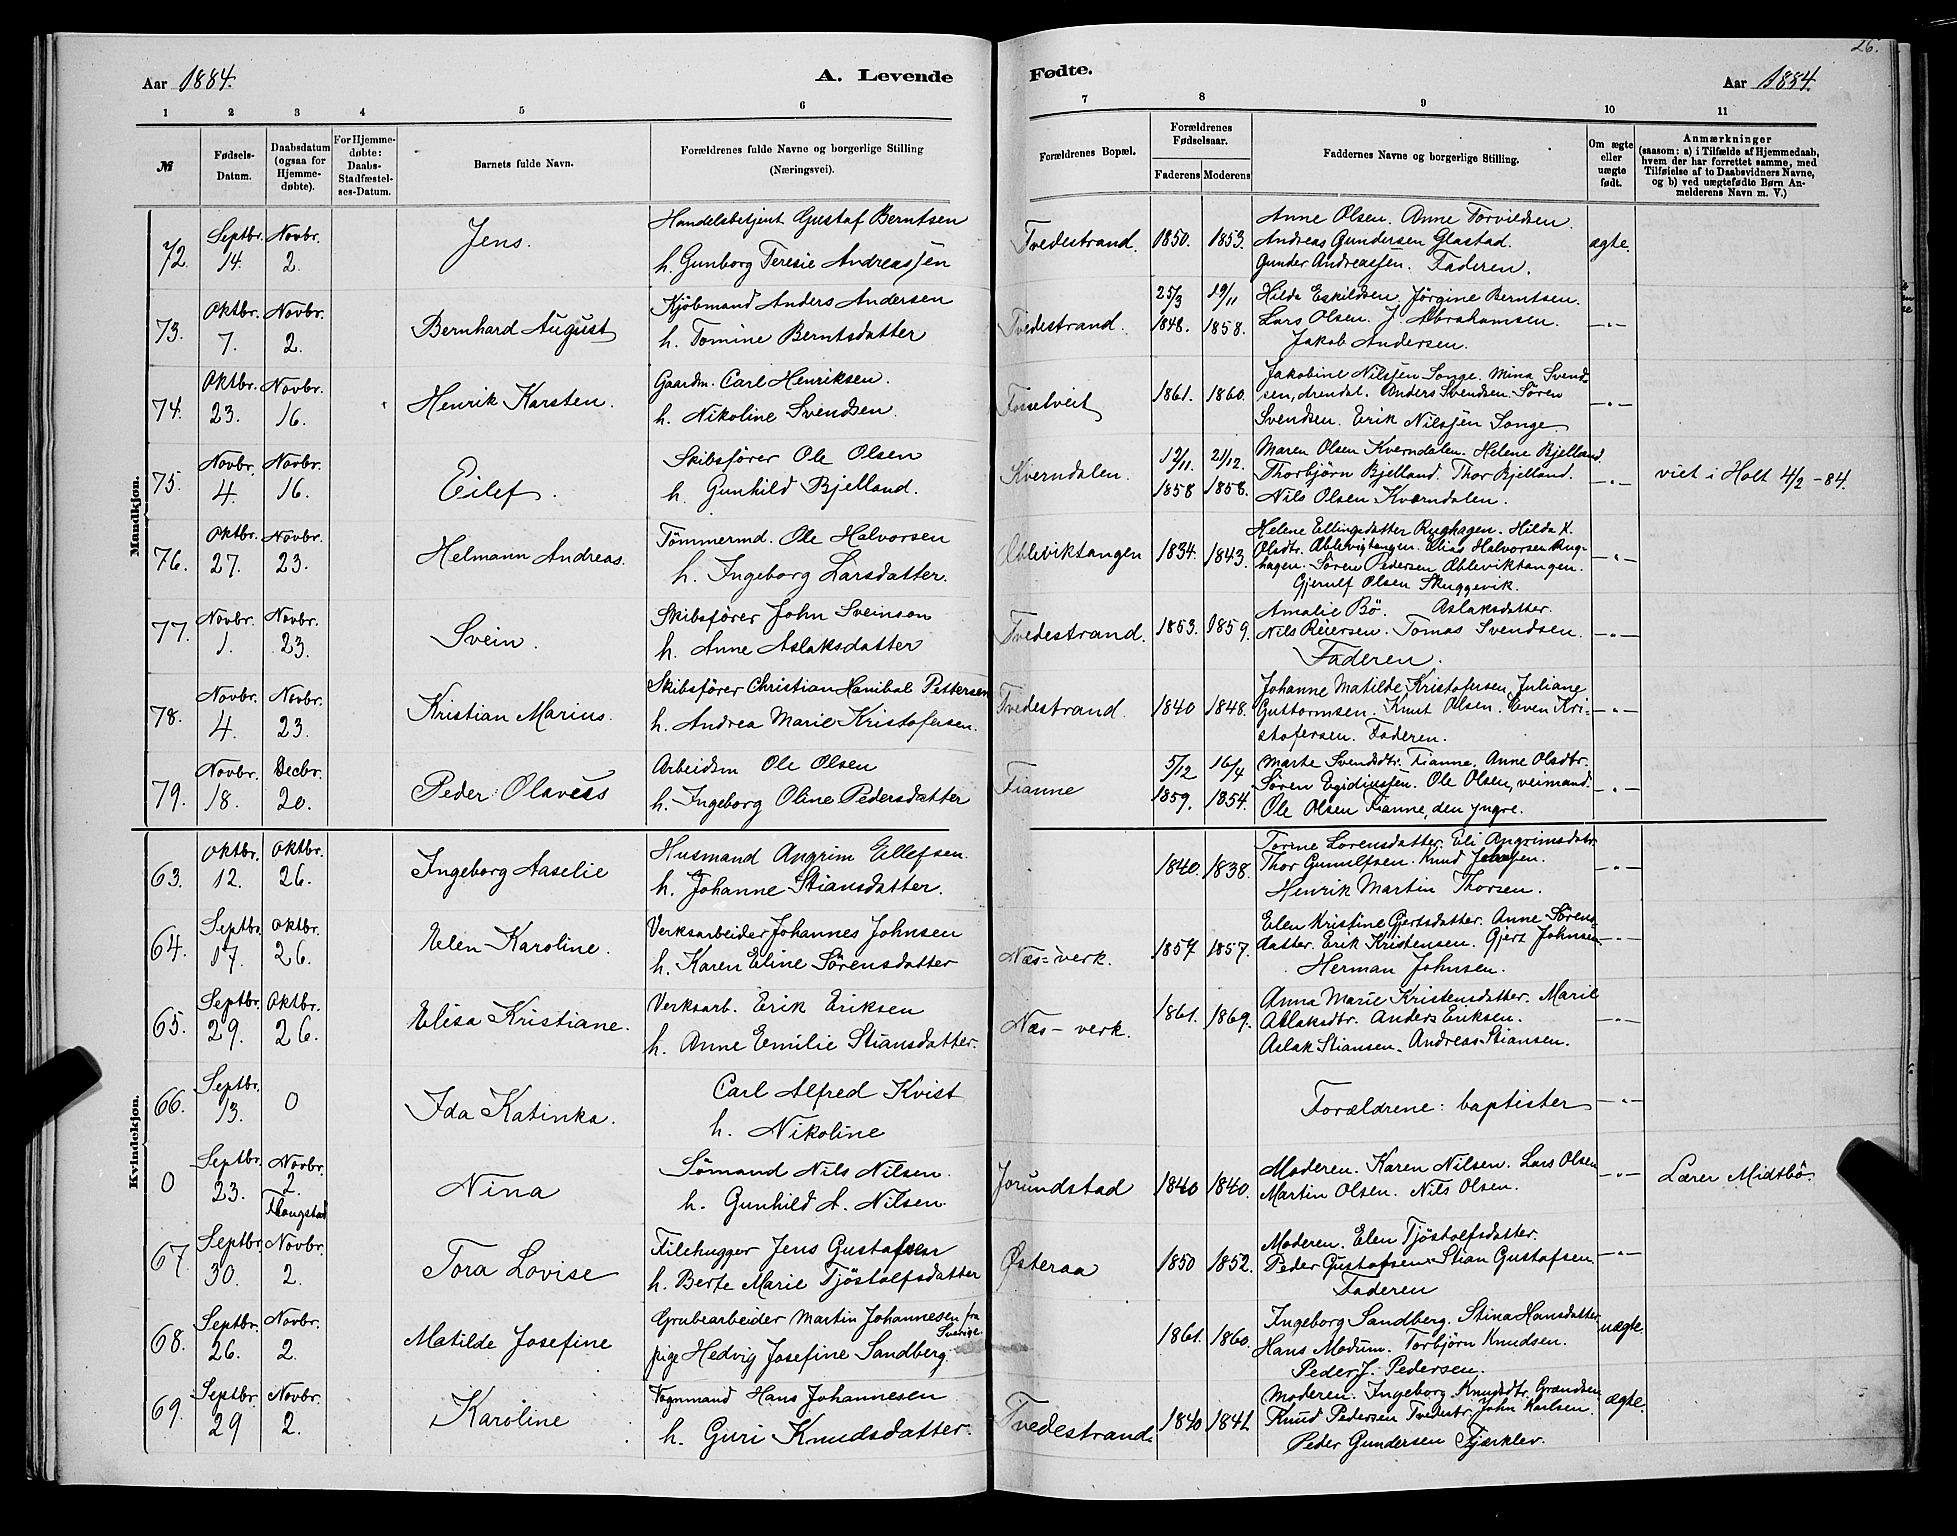 26.
Aar 1884. A. Levende Fødte. Aar 1884.
1 2 3 4 5 6 7 8 9 10 11
№
Fødsels-Datum.
Daabsdatum (ogsaa for Hjemme-døbte).
For Hjemme-døbte: Daabs-Stadfæstel-ses-Datum.
Barnets fulde Navn.
Forældrenes fulde Navne og borgerlige Stilling (Næringsvei).
Forældrenes Bopæl.
Forældrenes Fødselsaar.
Faderens Moderens
Faddernes Navne og borgerlige Stilling.
Om ægte eller uægte født.
Anmærkninger
(saasom: a) i Tilfælde af Hjemmedaab,
hvem der har forrettet samme, med
Tilføielse af to Daabsvidners Navne,
og b) ved uægtefødte Børn An-
melderens Navn m. V.)
Mandkjøn.
72. Septbr. 14. Novbr. 2. Jens.
Handelsbetjent Gustaf Berntsen
h. Gunborg Teresie Andreassen
Tvedestrand. 1850. 1853.
Anne Olsen. Anne Torvildsen
Andreas Gundersen Glastad.
Gunder Andreassen. Faderen.
ægte.
73. Oktbr. 7. Novbr. 2. Bernhard August
Kjöbmand Anders Andersen
h. Tomine Berntsdatter
Tvedestrand. 25/3 1848. 19/11 1858.
Hilda Eskildsen. Jörgine Berntsen.
Lars Olsen. J. Abrahamsen.
Jakob Andersen.
—"—
74. Oktbr. 23. Novbr. 16. Henrik Karsten.
Gaardm. Carl Henriksen.
h. Nikoline Svendsen.
Fosselveit 1861. 1860.
Jakobine Nilssen Songe. Mina Svend=
sen, Arendal. Anders Svendsen. Sören
Svendsen. Erik Nilssen Songe.
—"—
75. Novbr. 4. Novbr. 16. Eilef.
Skibsförer Ole Olsen
h. Gunhild Bjelland.
Kverndalen. 12/11 1858 21/12. 1858.
Maren Olsen Kverndalen. Helene Bjelland.
Thorbjörn Bjelland. Thor Bjelland.
Nils Olsen Kverndalen.
—"—
viet i Holt 4/2 - 84.
76. Oktbr. 27. Novbr. 23. Helmann Andreas.
Tömmermd. Ole Halvorsen
h. Ingeborg Larsdatter.
Ableviktangen 1834. 1843.
Helene Ellingsdatter Rughagen. Hilda K.
Olsdtr. Ablevigtangen. Elias Halvorsen Rug-
hagen. Sören Pedersen Ableviktangen.
Gjerulf Olsen Skuggevik.
—"—
77. Novbr. 1. Novbr. 23. Svein.
Skibsförer John Sveinson
h. Anne Aslaksdatter
Tvedestrand. 1853. 1859.
Amalie Bö. Aslaksdatter.
Nils Reiersen. Tomas Svendsen.
Faderen.
—"—
78. Novbr. 4. Novbr. 23. Kristian Marius.
Skibsförer Christian Hanibal Pettersen
h. Andrea Marie Kristofersen.
Tvedestrand. 1840 1848.
Johanne Matilde Kristofersen, Juliane
Guttormsen. Knut Olsen. Even Kri-
stofersen. Faderen.
—"—
79. Novbr. 18. Decbr. 20. Peder Olaves
Arbeidsm Ole Olsen
h. Ingeborg Oline Pedersdatter
Fianne 5/12 1859. 16/4 1854.
Marte Svendsdtr. Fianne. Anne Olsdtr.
Sören Egidiussen. Ole Olsen, veimand.
Ole Olsen Fianne, den yngre.
—"—
Kvindekjøn.
63. Oktbr. 12. Oktbr. 26. Ingeborg Aaselie
Husmand Angrim Ellefsen.
h. Johanne Stiansdatter.
1840. 1838.
Tomine Lorensdatter. Eli Angrimsdatr.
Thor Gunulfsen. Knud
Henrik Martin Thorsen.
—"—
64. Septbr. 17. Oktbr. 26. Elen Karoline.
Verksarbeider Johannes Johnsen
h. Karen Eline Sörensdatter
Næs=verk. 1857 1857.
Elen Kristine Gjertsdatter. Anne Sörens=
datter. Erik Kristensen. Gjert Johnsen
Herman Johnsen.
—"—
65. Septbr. 29. Oktbr. 26. Elisa Kristiane.
Verksarb. Erik Eriksen
h. Anne Emilie Stiansdatter.
Næs - verk. 1861. 1869.
Anna Marie Kristensdatter. Marie
Aslaksdtr. Anders Eriksen.
Aslak Stiansen. Andreas Stiansen.
—"—
66. Septbr. 13. 0 Ida Katinka.
Carl Alfred Kvist
h. Nikoline
Forældrene: baptister
—"—
0 Septbr. 23. Novbr. 2. Flougstad Nina
Sömand Nils Nilsen.
h. Gunhild A. Nilsen.
Jorundstad 1840 1840.
Moderen. Karen Nilsen. Lars Olsen
Martin Olsen. Nils Olsen.
—"—
Lærer Midtbö.
67. Septbr. 30. Novbr. 2. Tora Lovise
Filehugger Jens Gustafsen
h. Berte Marie Tjöstolfsdatter
Østeraa 1850 1852.
Moderen. Elen Tjöstolfsdatter.
Peder Gustafsen. Stian Gustafsen.
Faderen
—"—
68. Septbr. 26. Novbr. 2. Matilde Josefine
Grubearbeider Martin Johannesen fra Sverige.
pige Hedvig Josefine Sandberg.
1861. 1860.
Ingeborg Sandberg. Stina Hansdatter
Hans Modum. Torbjörn Knudsen.
Peder J. Pedersen.
uægte.
69. Septbr. 29 Novbr. 2. Karoline
Vognmand Hans Johannesen
h. Guri Knudsdatter.
Tvedestrand. 1840 1841
Moderen. Ingeborg Knudsdtr. Grændsen
Knud Pedersen Tvedestr. John Karlsen.
Peder Gundersen Fjærklev.
ægte.